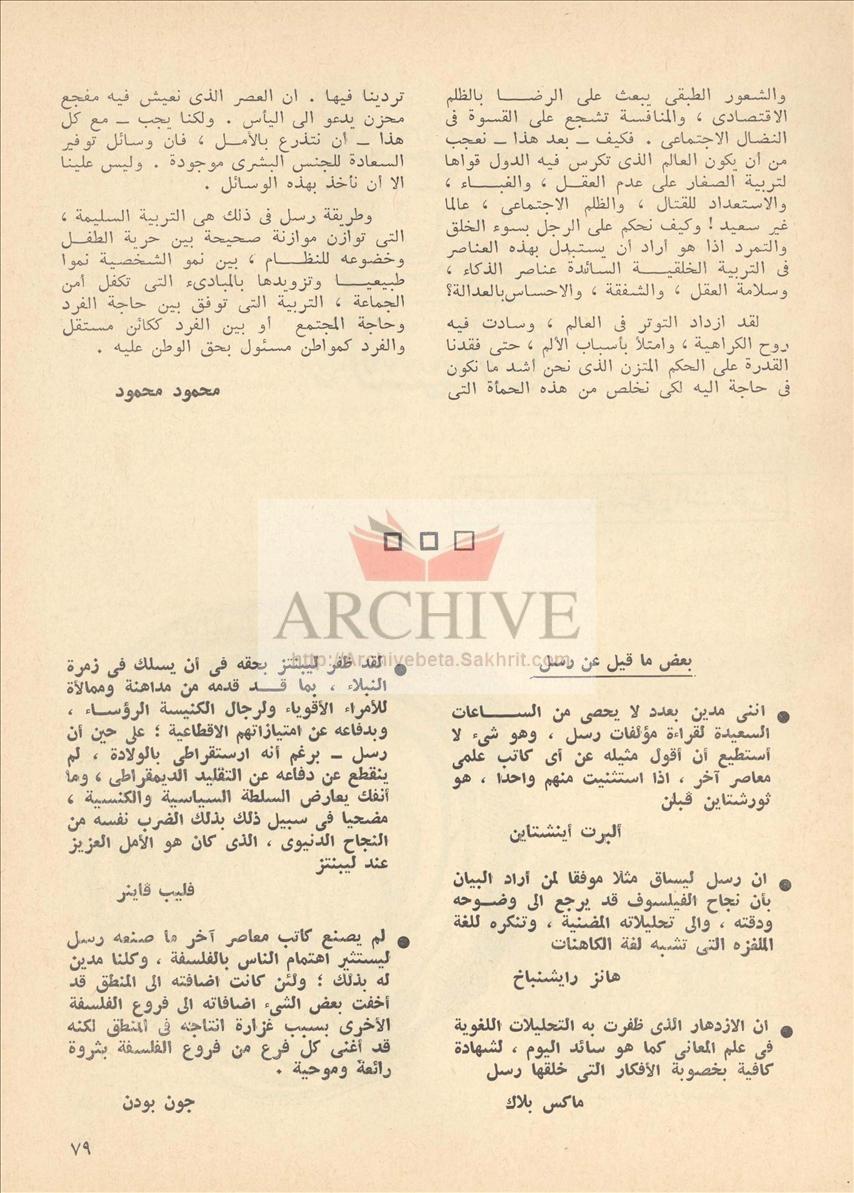 والشعور الطبقى يبعث على الرضـــا بالظلم
الاقتصادى ، والمنافسة تشجع على القسوة فى
النضال الاجتماعى . فكيف ــ بعد هذا ــ نعجب
من أن يكون العالم الذى تكرس فيه الدول قواها
لتربية الصغار على عدم العقـل ، والغبـــاء ،
والاستعداد للقتال ، والظلم الاجتماعى ، عالما
غير سعيد! وكيف نحكم على الرجل بسوء الخلق
والتمرد اذا هو أراد أن يستبدل بهذه العناصر
فى التربية الخلقيـــة السائدة عناصر الذكاء ،
وسلامة العقل ، والشفقة ، والاحساس بالعدالة؟
لقد ازداد التوتر فى العالم ، وسادت فيه
روح الكراهية ، وامتلأ بأسباب الألم ، حتى فقدنا
القدرة على الحكم المتزن الذى نحن أشد ما نكون
فى حاجة اليه لكى نخلص من هذه الحمأة التى
تردينا فيها . ان العصر الذى نعيش فيه مفجع
محزن يدعو الى اليأس . ولكنا يجب ــ مع كل
هذا ــ أن نتذرع بالأمـل ، فان وسائل توفير
السعادة للجنس البشرى موجودة . وليس علينا
الا أن نأخذ بهذه الوسائل .
وطريقة رسل فى ذلك هى التربية السليمة ،
التى توازن موازنة صحيحة بين حرية الطفـل
وخضوعه للنظـــام ، بين نمو الشخصية نموا
طبيعيـــا وتزويدها بالمبادىء التى تكفل أمن
الجماعة ، التربية التى توفق بين حاجة الفرد
وحاجة المجتمع أو بين الفرد ككائن مستقل
والفرد كمواطن مسئول بحق الوطن عليه .
محمود محمود
ARCHIVE
http://Archivebeta.Sakhrit.com
بعض ما قيل عن رسل
● اننى مدين بعدد لا يحصى من الســـاعات
السعيدة لقراءة مؤلفات رسل ، وهو شىء لا
أستطيع أن أقول مثيله عن أى كاتب علمى
معاصر آخر ، اذا استثنيت منهم واحدا ، هو
ثورشتاين فبلن
ألبرت أينشتاين
● ان رسل ليساق مثلا موفقا لمن أراد البيان
بأن نجاح الفيلسوف قد يرجع الى وضـوحه
ودقته ، والى تحليلاته المضنية ، وتنكره للغة
الملغزه التى تشبه لغة الكاهنات
هانز رايشنباخ
● ان الازدهار الذى ظفرت به التحليلات اللغوية
فى علم المعانى كما هو سائد اليوم ، لشهادة
كافية بخصوبة الأفكار التى خلقها رسل
ماكس بلاك
● لقد ظفر ليبنتز بحقه فى أن يسلك فى زمرة
النبلاء ، بما قــد قدمه من مداهنة وممالأة
للأمراء الأقوياء ولرجال الكنيسة الرؤساء ،
وبدفاعه عن امتيازاتهم الاقطاعية ؛ على حين أن
رسل ــ برغم أنه ارستقراطى بالولادة ، لم
ينقطع عن دفاعه عن التقليد الديمقراطى ، وما
أنفك يعارض السلطة السياسية والكنسية ،
مضحيا فى سبيل ذلك بذلك الضرب نفسه من
النجاح الدنيوى ، الذى كان هو الأمل العزيز
عند ليبنتز
فليب ڤاينر
● لم يصنع كاتب معاصر آخر ما صنعه رسل
ليستثير اهتمام الناس بالفلسفة ، وكلنا مدين
له بذلك ؛ ولئن كانت اضافته الى المنطق قد
أخفت بعض الشىء اضافاته الى فروع الفلسفة
الأخرى بسبب غزارة انتاجه فى المنطق لكنه
قد أغنى كل فرع من فروع الفلسفة بثروة
رائعة وموحية .
جون بودن
٧٩